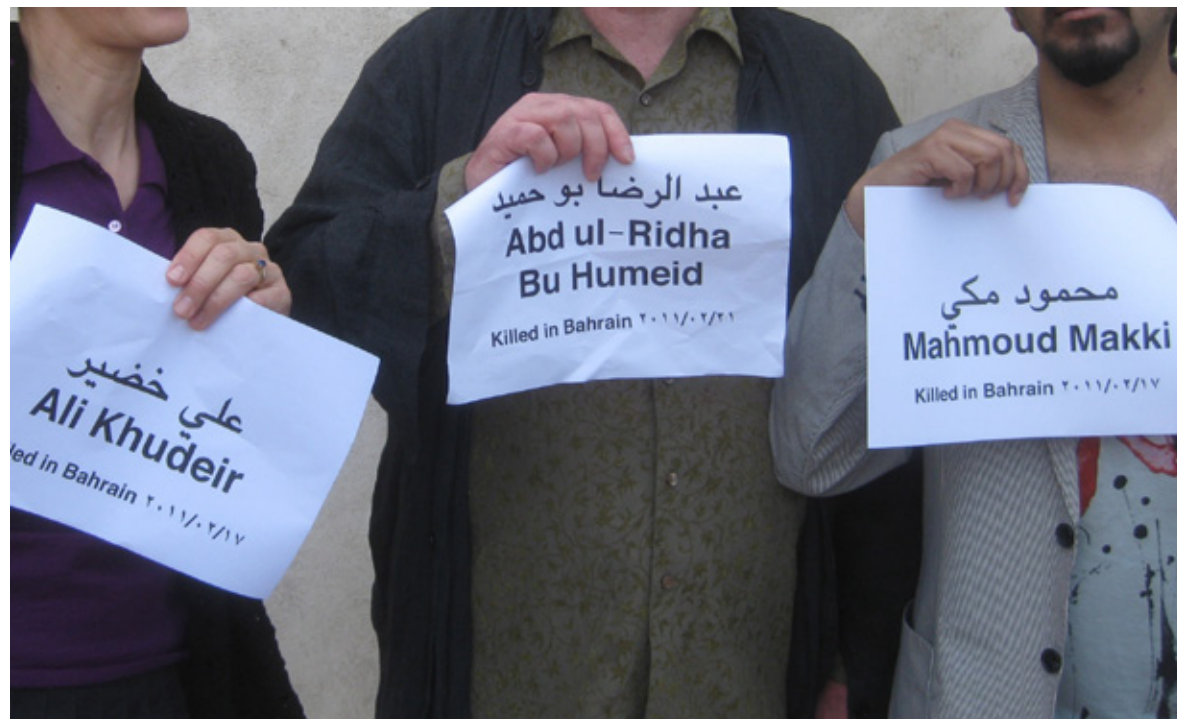 علي خضير
Ali Khudeir
led in Bahrain ٢٠١١/٠٢/١٧
عبد الرضا بو حميد
Abd ul-Ridha
Bu Humeid
Killed in Bahrain ٢٠١١/٠٢/٢١
محمود مكي
Mahmoud Makki
Killed in Bahrain ٢٠١١/٠٢/١٧